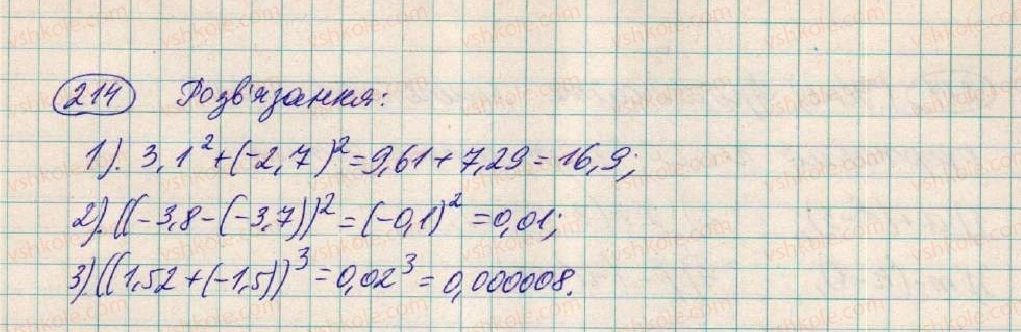 214 Розв'язання:
1). 3,1² + (-2,7)² = 9,61 + 7,29 = 16,9;
2). ((-3,8 - (-3,7))² = (-0,1)² = 0,01;
3) ((1,52 + (-1,5))³ = 0,02³ = 0,000008.